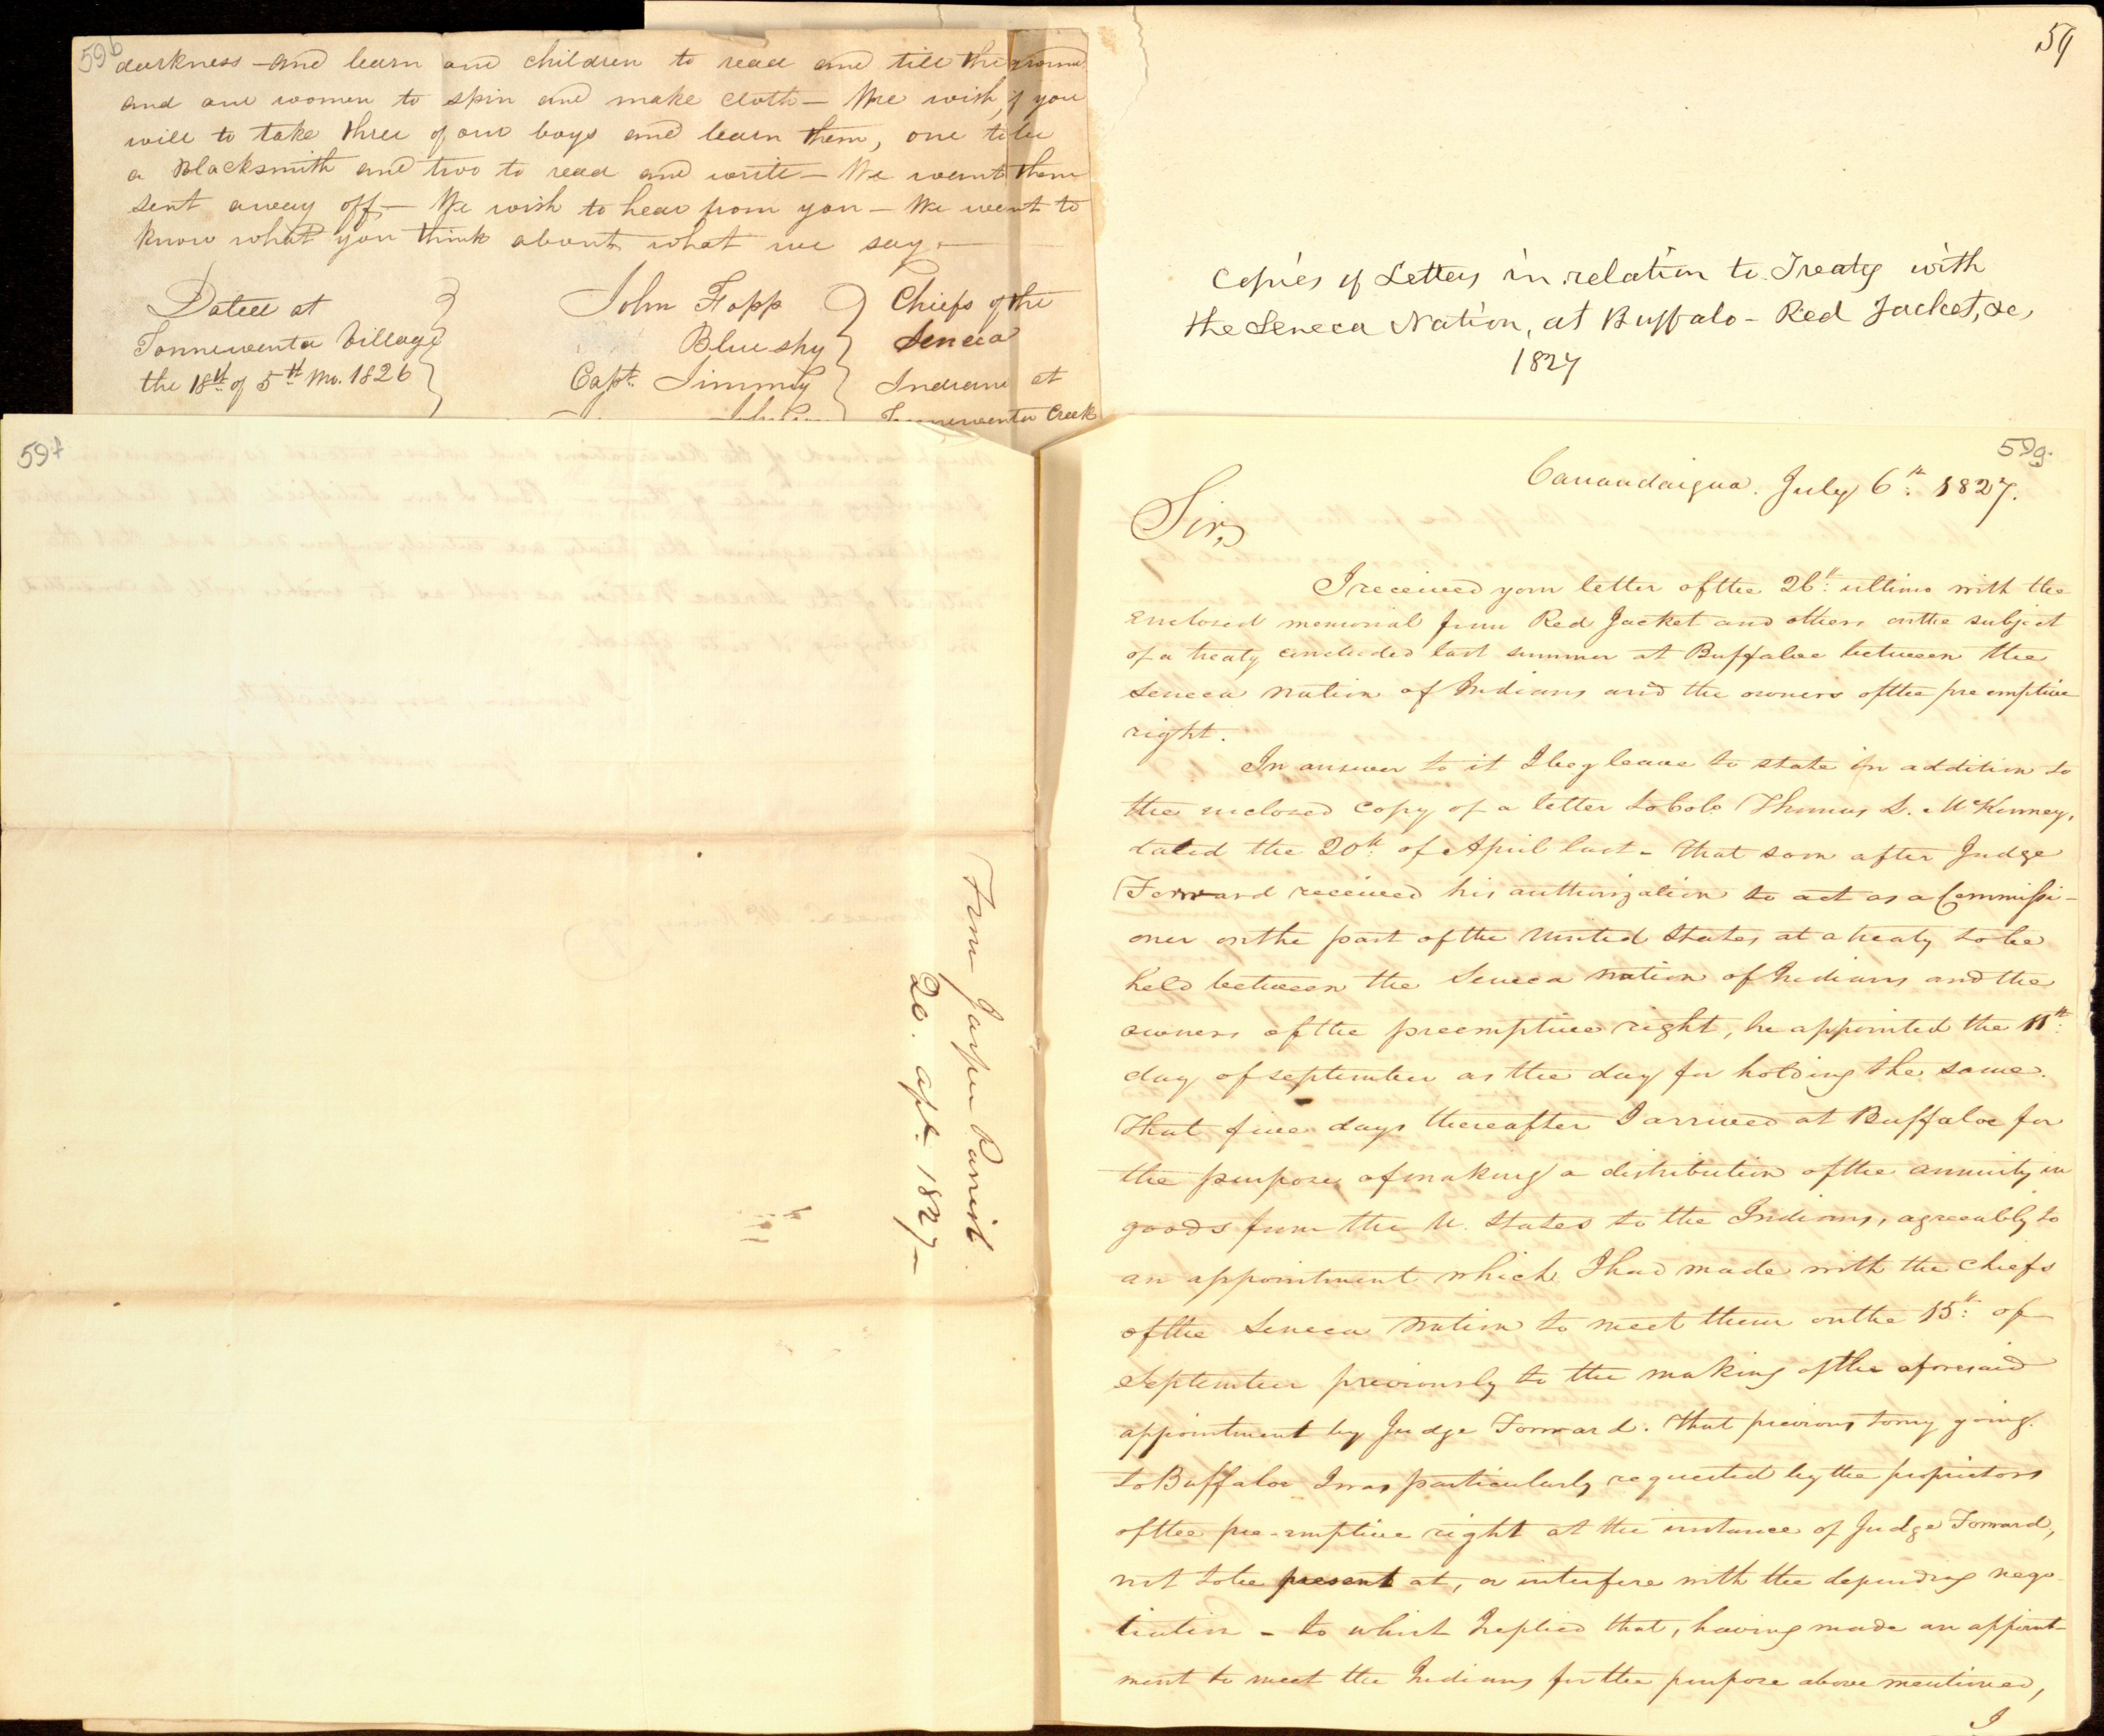 59b
darkness - and learn our children to read and till the ground
and our women to spin and make cloth - We wish, if you
will to take three of our boys and learn them, one to be
a Blacksmith and two to read and write - We want them
sent away off - We wish to hear from you - We want to
know what you think about what we say -
Dated at
Tonnewenta Village
the 18th of 5th Mo. 1826
John Fopp
Blue sky
Capt. Jimmy
Chiefs of the
Seneca
Indians at
Tonnewenta Creek
59
Copies of Letters in relation to Treaty with
the Seneca Nation, at Buffalo - Red Jacket, &c,
1827
59f
From Jasper Parrish
20. apl. 1827 -
59g.
Canandaigua. July 6th: 1827.
Sir,
I received your letter of the 26th: ultimo with the
enclosed memorial from Red Jacket and others on the subject
of a treaty concluded last summer at Buffaloe between the
Seneca nation of Indians and the owners of the pre emptive
right.
In answer to it I beg leave to state in addition to
the enclosed copy of a letter to Colo. Thomas L. McKenney,
dated the 20th: of April last - That soon after Judge
Forward received his authorization to act as a Commissi-
oner on the part of the United States at a treaty to be
held between the Seneca nation of Indians and the
owners of the preemptive right, he appointed the 11th:
day of September as the day for holding the same.
That five days thereafter I arrived at Buffaloe for
the purpose of making a distribution of the annuity in
goods from the U. States to the Indians, agreeably to
an appointment which I had made with the chiefs
of the Seneca nation to meet them on the 15th: of
September previously to the making of the aforesaid
appointment by Judge Forward. That previous to my going
to Buffaloe I was particularly requested by the proprietors
of the pre-emptive right at the instance of Judge Forward,
not to be present at, or interfere with the depending nego-
tiation - to which I replied that, having made an appoint-
ment to meet the Indians for the purpose above mentioned,
I